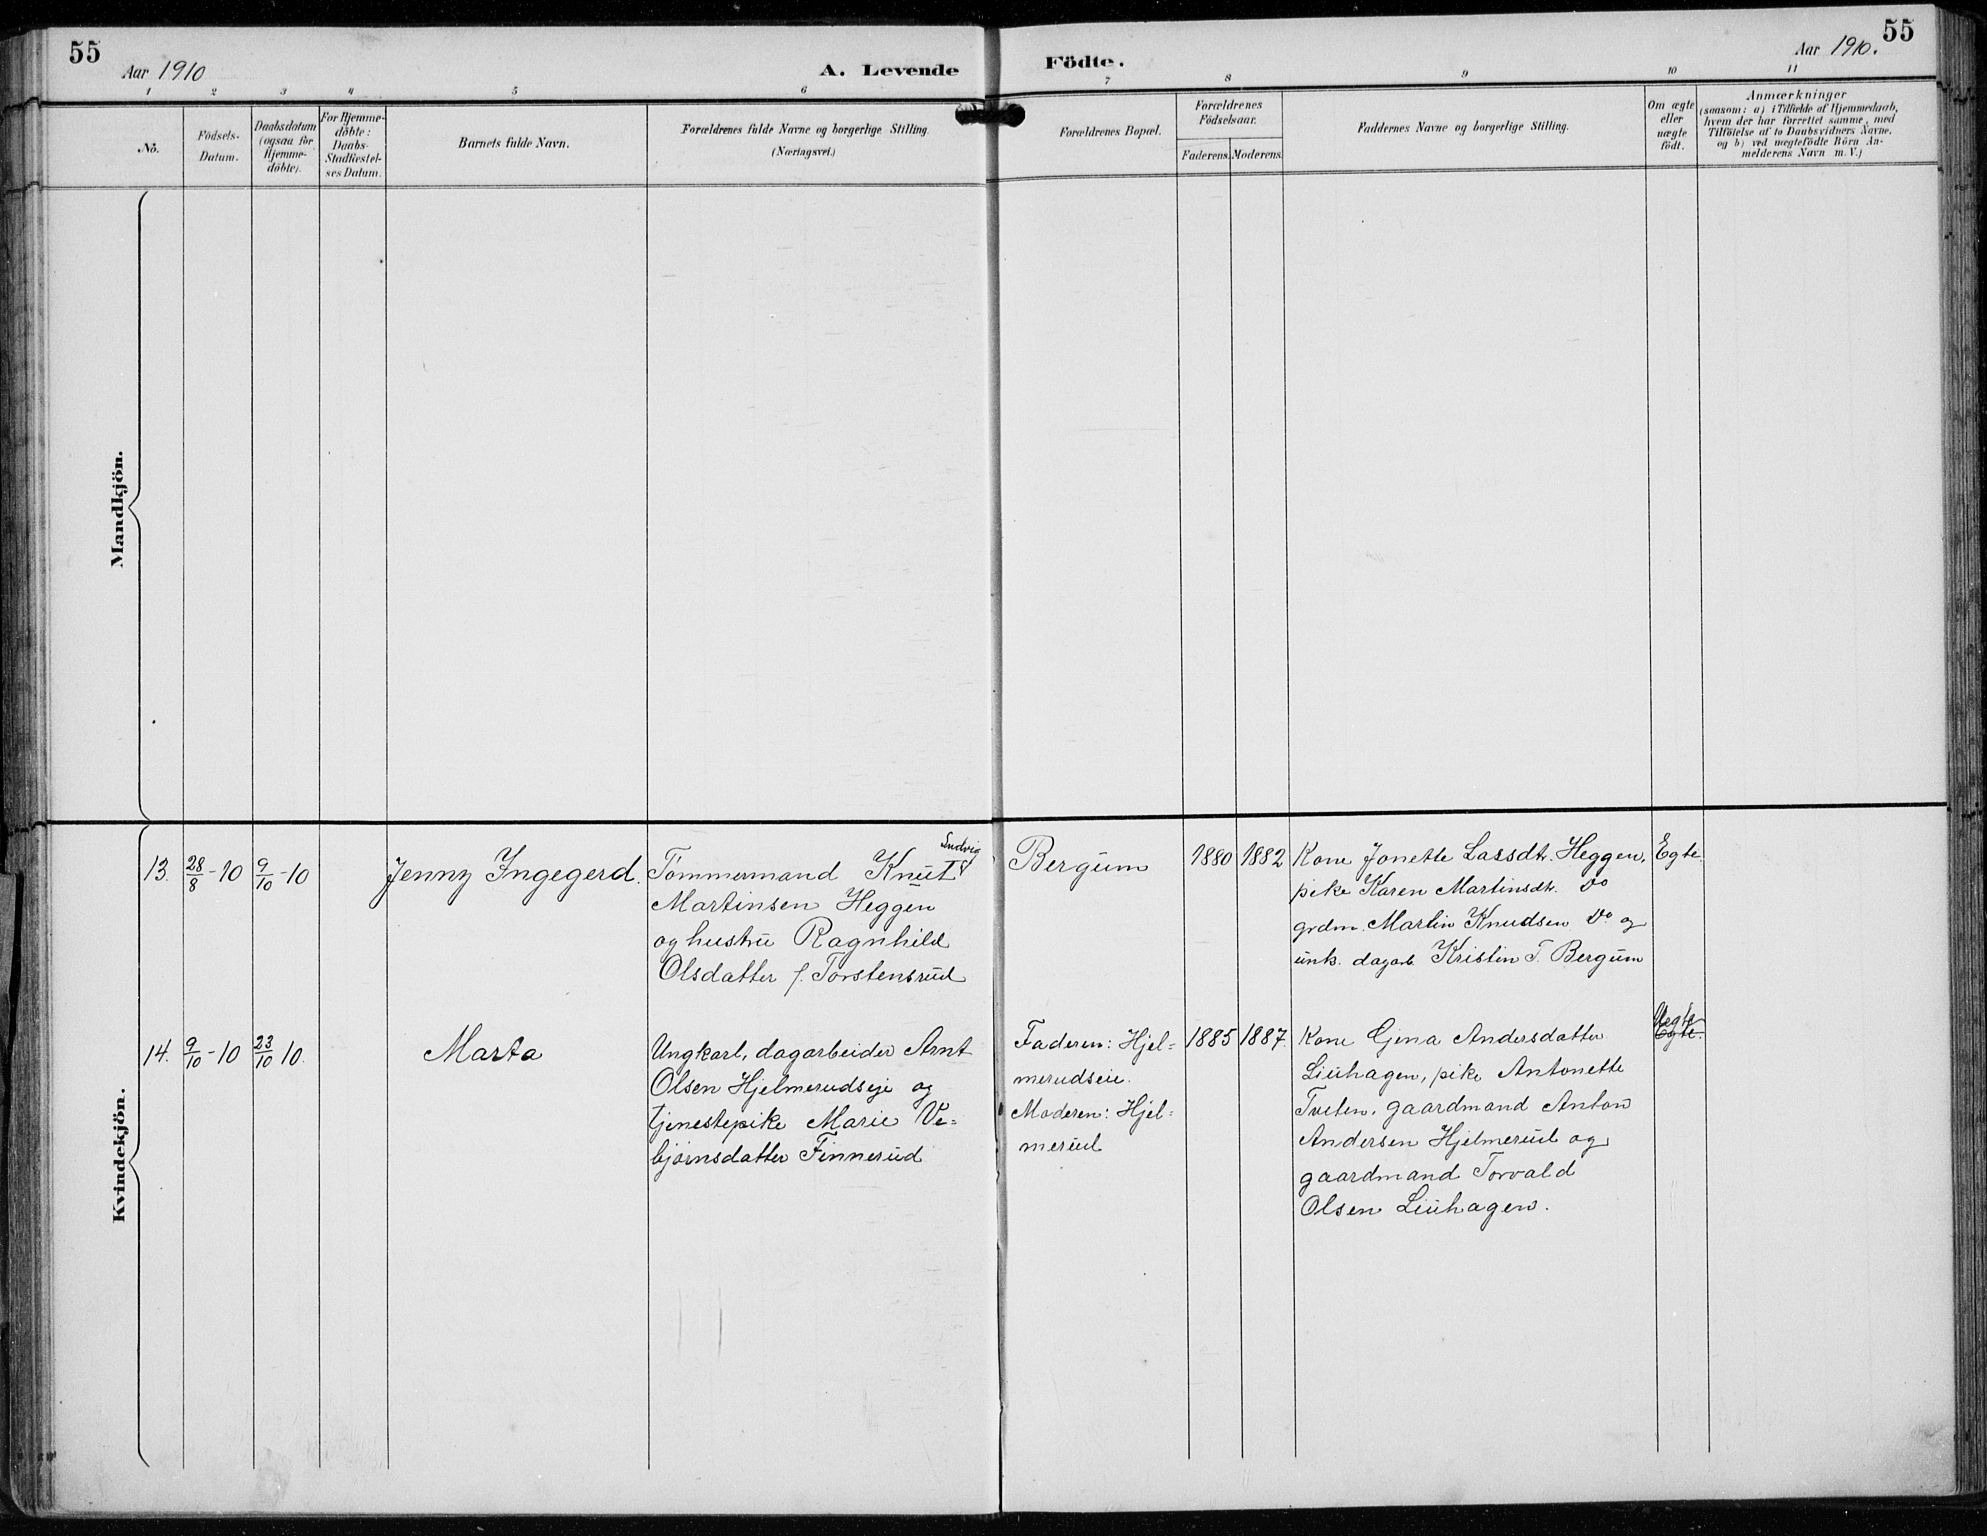 55
Aar 1910
A. Levende
Födte.
Aar 1910.
55
1 2 3 4 5 6 7 8 9 10 11
Nô.
Födsels-
Datum.
Daabsdatum
(ogsaa for
Hjemme-
döbte).
For Hjemme-
döbte:
Daabs-
Stadfæstel-
ses Datum.
Barnets fulde Navn.
Forældrenes fulde Navne og borgerlige Stilling.
(Næringsvei.)
Forældrenes Bopæl.
Forældrenes
Födselsaar.
Faderens. Moderens.
Faddernes Navne og borgerlige Stilling.
Om ægte
eller
uægte
födt.
Anmærkninger
(saasom: a) i Tilfælde af Hjemmedaab,
hvem der har forrettet samme, med
Tilföielse af to Daabsvidners Navne.
og b) ved uægtefödte Börn An-
melderens Navn m. V.)
Mandkjön.
Kvindekjön.
13.
28/8-10
9/10-10
Jenny Ingegerd.
Ludvig
Tømmermand Knut
Martinsen Heggen
og hustru Ragnhild
Olsdatter f. Torstensrud
Bergum
1880
1882
Kone Jonette Larsdt. Heggen,
pike Karen Martinsdt. Do
grdm. Martin Knudsen Do og
unk. dagarb. Kristen T. Bergum
Egte.
14.
9/10-10
23/10 10.
Marta
Ungkarl, dagarbeider Arnt
Olsen Hjelmerudseje og
tjenestepike Marie Ve=
bjørnsdatter Finnerud
Faderen: Hjel=
merudseie.
Moderen: Hjel=
merud
1885
1887.
Kone Gina Andersdatter
Liuhagen, pike Antonette
Tveten, gaardmand Anton
Andersen Hjelmerud og
gaardmand Torvald
Olsen Liuhagen.
Uegte
Egte.